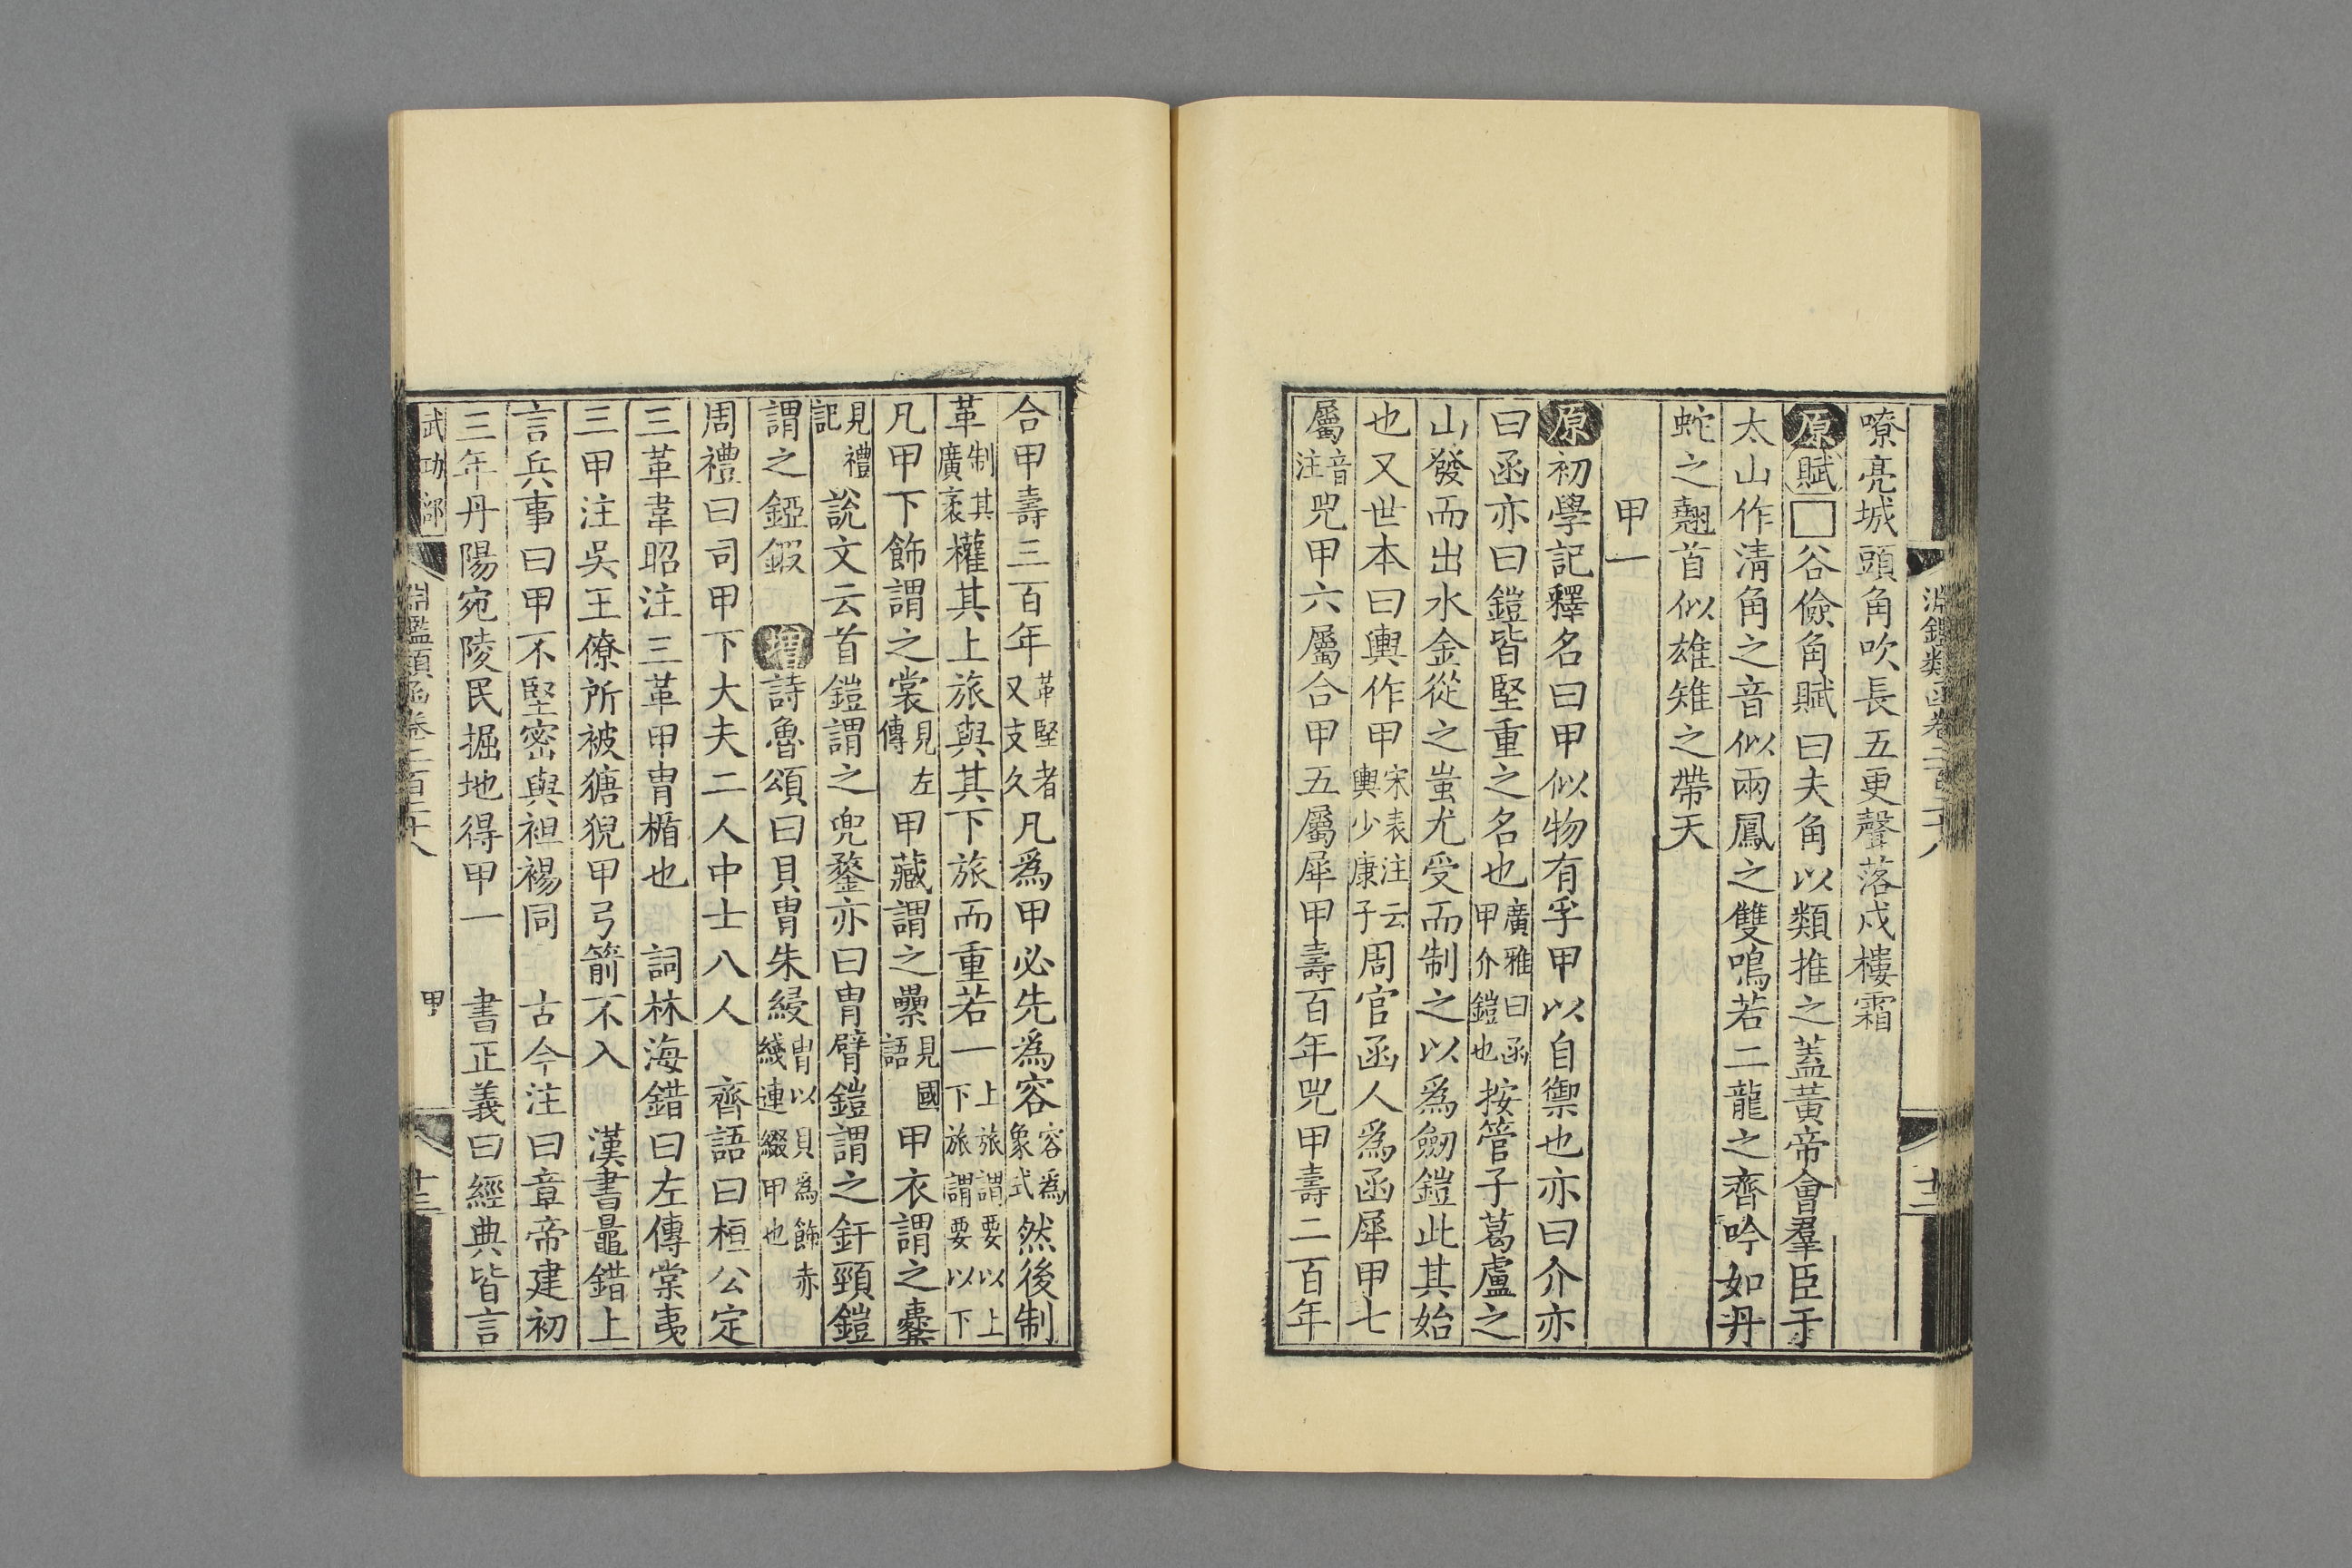 淵鑑類函卷二百二十八
十二
嘹亮城頭角吹長五更聲落戍樓霜
原賦□谷儉角賦曰夫角以類推之蓋黃帝會羣臣于
太山作淸角之音似兩鳳之雙鳴若二龍之齊吟如丹
蛇之翹首似雄雉之帶天
甲一
原初學記釋名曰甲似物有孚甲以自禦也亦曰介亦
曰函亦曰鎧皆堅重之名也廣雅曰函甲介鎧也按管子葛盧之
山發而出水金從之蚩尤受而制之以爲劒鎧此其始
也又世本曰輿作甲宋衷注云輿少康子周官函人爲函犀甲七
屬音注兕甲六屬合甲五屬犀甲壽百年兕甲壽二百年
合甲壽三百年革堅者又支久凡爲甲必先爲容容爲象式然後制
革制其廣袤權其上旅與其下旅而重若一上旅謂要以上下旅謂要以下
凡甲下飾謂之裳見左傳甲藏謂之櫜見國語甲衣謂之櫜
見禮記說文云首鎧謂之兜鍪亦曰胄臂鎧謂之釬頸鎧
謂之錏鍜增詩魯頌曰貝胄朱綅胄以貝爲飾赤綫連綴甲也
周禮曰司甲下大夫二人中士八人 齊語曰桓公定
三革韋昭注三革甲胄楯也 詞林海錯曰左傳棠夷
三甲注吳王僚所被猺猊甲弓箭不入 漢書鼂錯上
言兵事曰甲不堅密與袒裼同 古今注曰章帝建初
三年丹陽宛陵民掘地得甲一 書正義曰經典皆言
武功部
淵鑑類函卷二百二十八
甲
十三